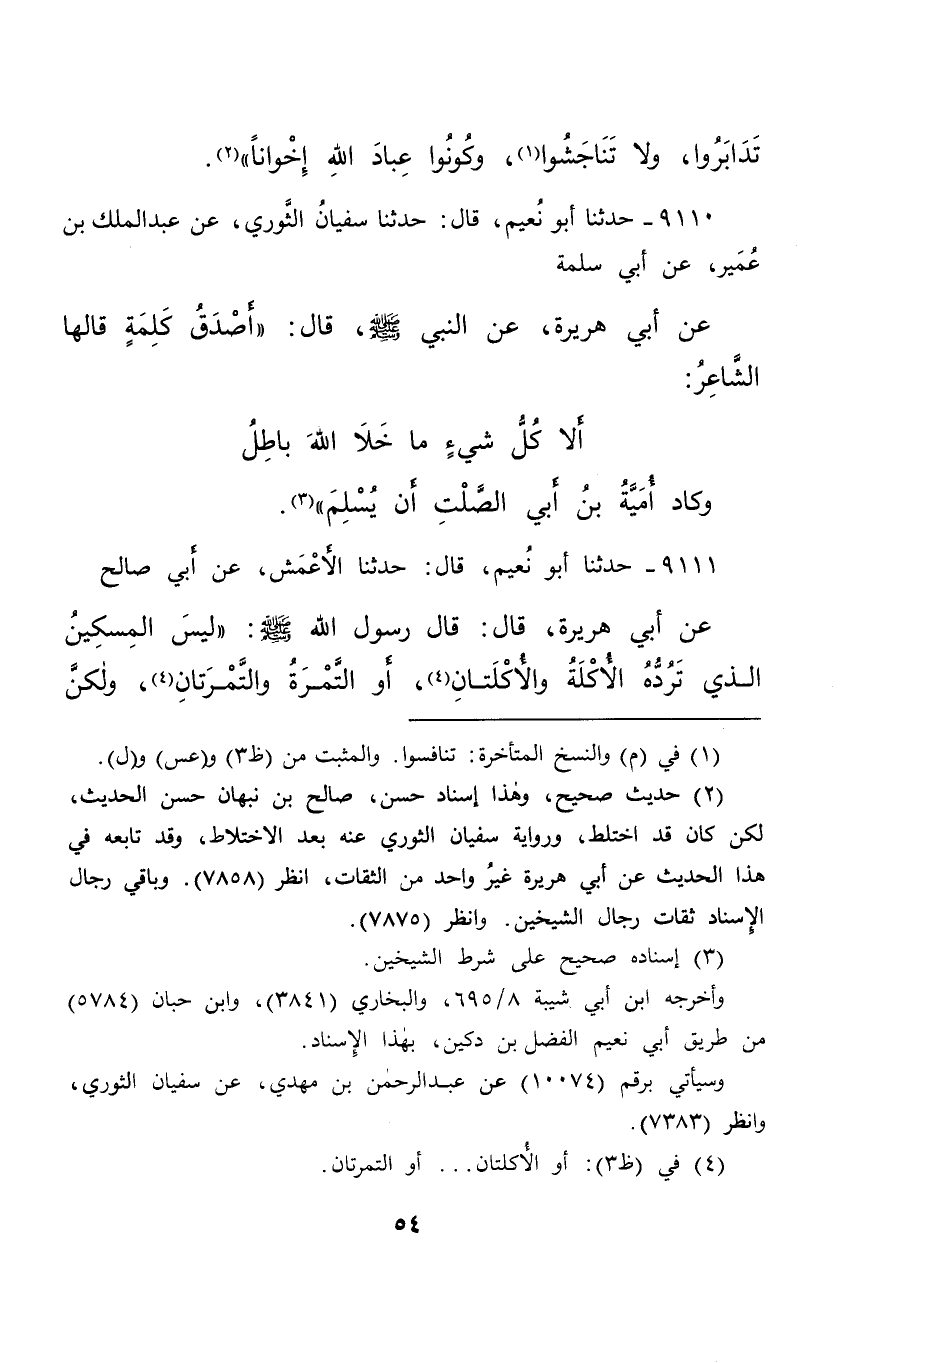 تَدَابَرُوا، ولا تَنَاجَشُوا(١)، وكُونُوا عِبادَ اللهِ إِخْواناً»(٢).
٩١١٠ - حدثنا أبو نُعيم، قال: حدثنا سفيانُ الثَّوري، عن عبدالملك بن
عُمَير، عن أبي سلمة
عن أبي هريرة، عن النبي ﷺ، قال: «أَصْدَقُ كَلِمَةٍ قالها
الشَّاعِرُ:
أَلا كُلُّ شيءٍ ما خَلَا اللهَ باطِلُ
وكاد أُمَيَّةُ بنُ أَبي الصَّلْتِ أَن يُسْلِمَ»(٣).
٩١١١ - حدثنا أبو نُعيم، قال: حدثنا الأَعْمَش، عن أَبي صالح
عن أبي هريرة، قال: قال رسول الله ﷺ: «ليسَ المِسكِينُ
الـذي تَرُدُّهُ الأُكْلَةُ والأُكْلَتـانِ(٤)، أَو التَّمْـرَةُ والتَّمْـرَتانِ(٤)، ولٰكنَّ
(١) في (م) والنسخ المتأخرة: تنافسوا. والمثبت من (ظ٣) و(عس) و(ل).
(٢) حديث صحيح، وهٰذا إسناد حسن، صالح بن نبهان حسن الحديث،
لكن كان قد اختلط، ورواية سفيان الثوري عنه بعد الاختلاط، وقد تابعه في
هذا الحديث عن أبي هريرة غيرُ واحد من الثقات، انظر (٧٨٥٨). وباقي رجال
الإسناد ثقات رجال الشيخين. وانظر (٧٨٧٥).
(٣) إسناده صحيح على شرط الشيخين.
وأخرجه ابن أبي شيبة ٦٩٥/٨، والبخاري (٣٨٤١)، وابن حبان (٥٧٨٤)
من طريق أبي نعيم الفضل بن دكين، بهٰذا الإسناد.
وسيأتي برقم (١٠٠٧٤) عن عبـدالرحمٰن بن مهدي، عن سفيان الثوري،
وانظر (٧٣٨٣).
(٤) في (ظ٣): أو الأُكلتان... أو التمرتان.
٥٤